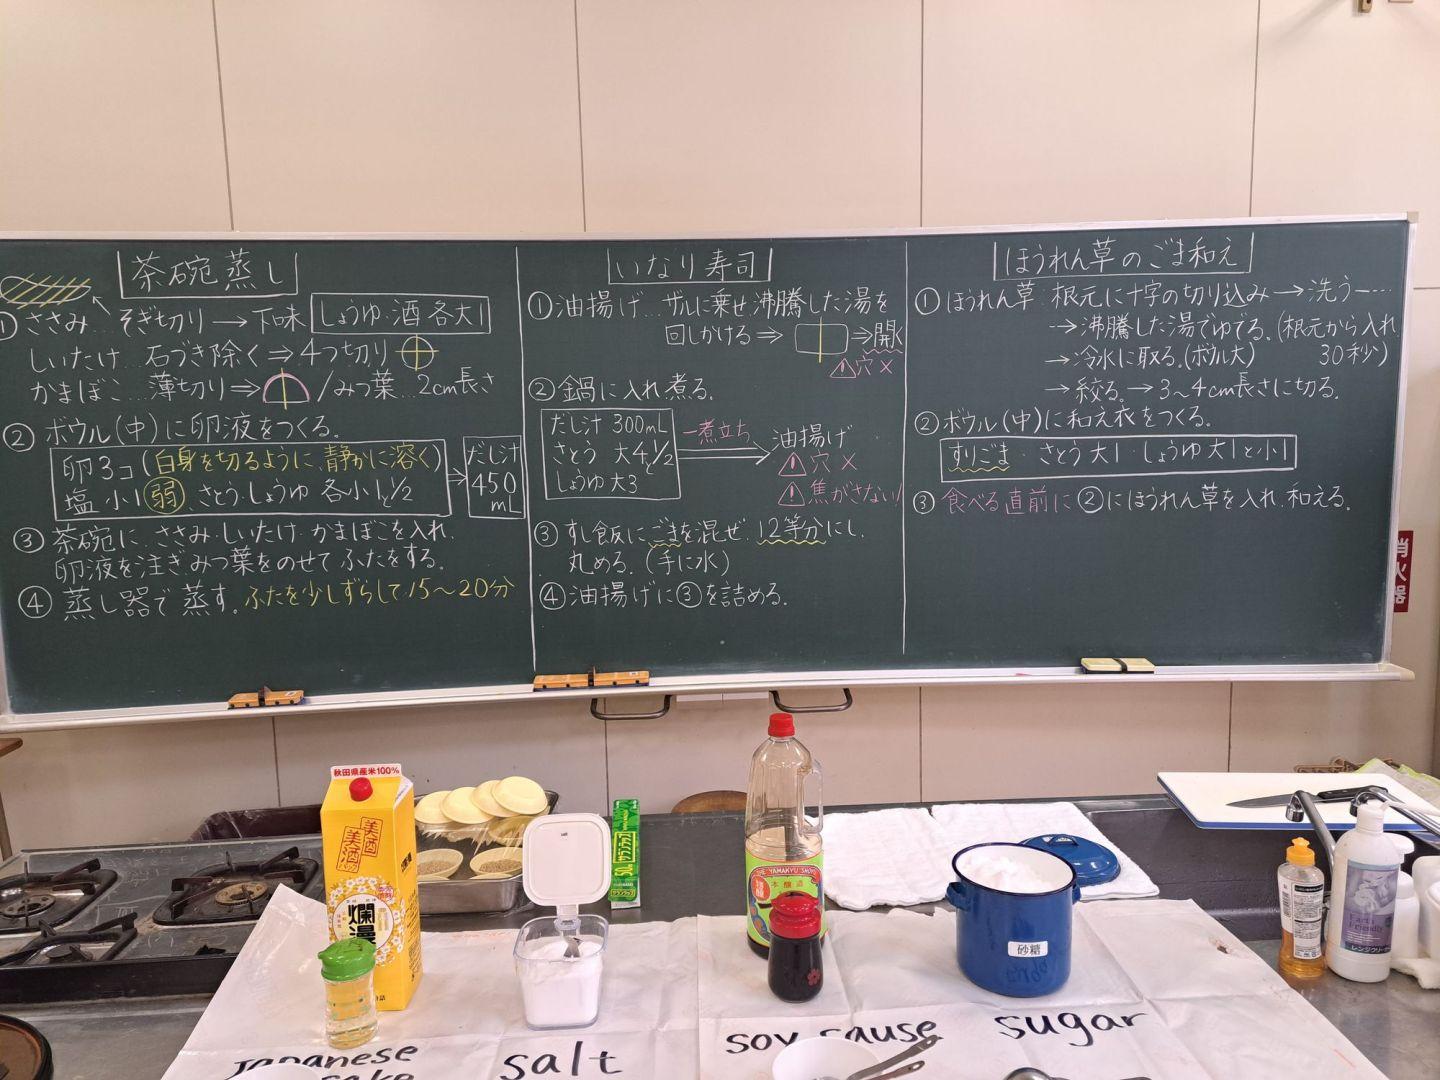 茶碗蒸し
① ささみ…そぎ切り→下味 しょうゆ・酒 各大1
しいたけ…石づき除く⇒4つ切り
かまぼこ…薄切り⇒ /みつ葉…2cm長さ
② ボウル(中)に卵液をつくる。
卵3コ(白身を切るように、静かに溶く)
塩 小1弱、さとう・しょうゆ 各小1と1/2
→ だし汁 450mL
③ 茶碗に、ささみ・しいたけ・かまぼこを入れ、
卵液を注ぎみつ葉をのせて ふたをする。
④ 蒸し器で蒸す。ふたを少しずらして15〜20分
いなり寿司
① 油揚げ…ザルに乗せ、沸騰した湯を
回しかける⇒ ⇒開く
⚠穴×
② 鍋に入れ煮る。
だし汁 300mL
さとう 大4と1/2
しょうゆ 大3
一煮立ち
油揚げ
⚠穴×
⚠焦がさない!
③ すし飯にごまを混ぜ、12等分にし、
丸める。(手に水)
④ 油揚げに③を詰める。
ほうれん草のごま和え
① ほうれん草…根元に十字の切り込み→洗う…
→沸騰した湯でゆでる。(根元から入れ
30秒)
→冷水に取る。(ボウル大)
→絞る。→3〜4cm長さに切る。
② ボウル(中)に和え衣をつくる。
すりごま・さとう大1・しょうゆ大1と小1
③ 食べる直前に②にほうれん草を入れ、和える。
消火器
秋田県産米100%
美酒
美酒
爛漫
サランラップ
THE YAMAKYU SHOYU
本醸造
砂糖
Earth Friendly
レンジクリーナー
Japanese sake
salt
soy sause
sugar